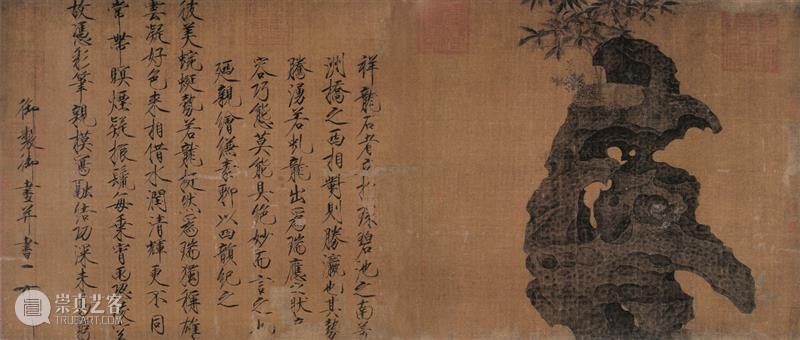 祥龍石者立於環碧池之南芳
洲橋之西相對則勝瀛也其勢
騰湧若虬龍出為瑞應之狀奇
容巧態莫能具絕妙而言之也
廼親繪縑素聊以四韻紀之
彼美蜿蜒勢若龍挺然為瑞獨稱雄
雲凝好色來相借水潤清輝更不同
常帶暝煙疑振鬣每乘宵雨恐
故憑彩筆親模寫融結功深未易窮
御製御畫并書
崇真艺客
TRUEART.COM